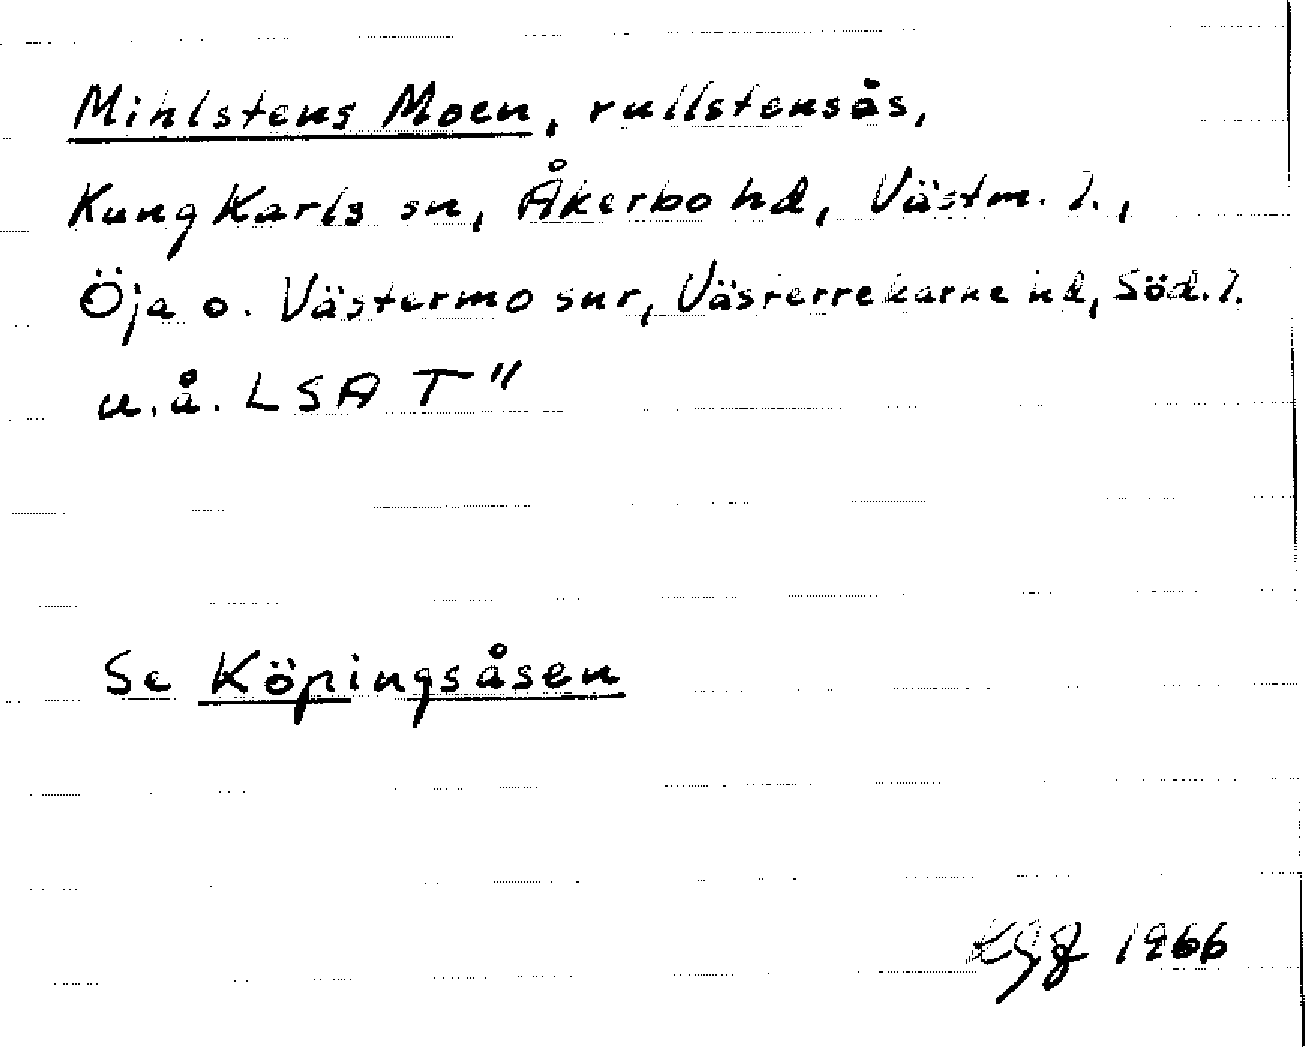 Mihlstens Moen, rullstensås,
Kung Karls sn, Åkerbo hd, Västm. l.,
Öja o. Västermo snr, Västerrekarne hd, Söd. l.
u. å. LSA T"
Se Köpingsåsen
1966